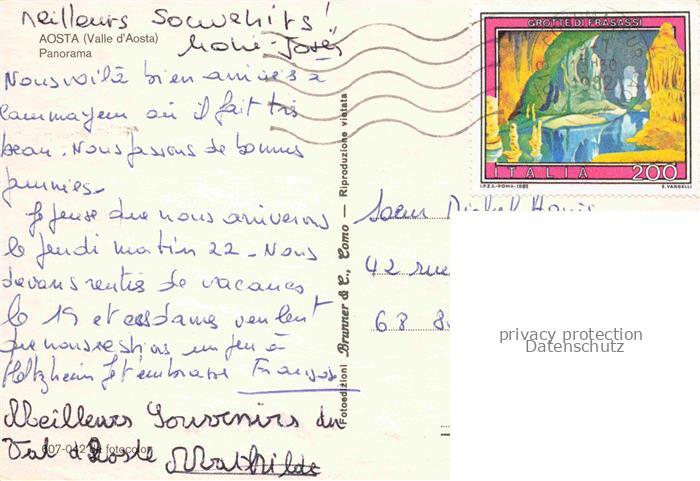 Meilleurs Souvenirs!
Marie-Josée
AOSTA (Valle d'Aosta)
Panorama
Nous voilà bien arrivés à
Courmayeur où il fait très
beau. Nous passons de bonnes
journées.
Je pense que nous arriverons
le jeudi matin 22 - Nous
devons rentrer de vacances
le 19 et ces dames veulent
que nous restions un peu à
Holtzheim Je t'embrasse
Meilleurs Souvenirs du
Val d'Aoste Mathilde
607-042 fotocolor
Fotoedizioni Brunner & C., Como — Riproduzione vietata
GROTTE DI FRASASSI
ITALIA 200
I.P.Z.S.-ROMA-1982 E. VANGELLI
Soeur
42 rue
68
privacy protection
Datenschutz